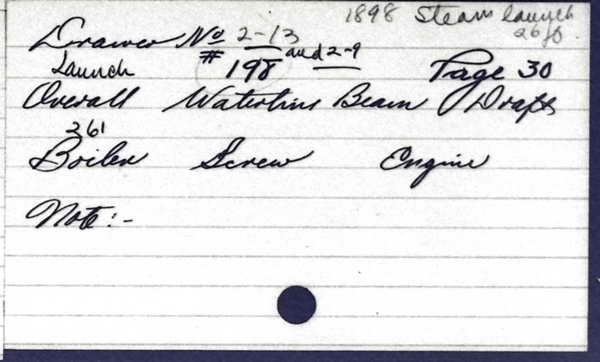 1898 Steam launch
26 ft.
Drawer No 2-13 and 2-9
Launch # 198 Page 30
Overall Waterline Beam Draft
261
Boiler Screw Engine
Note:-